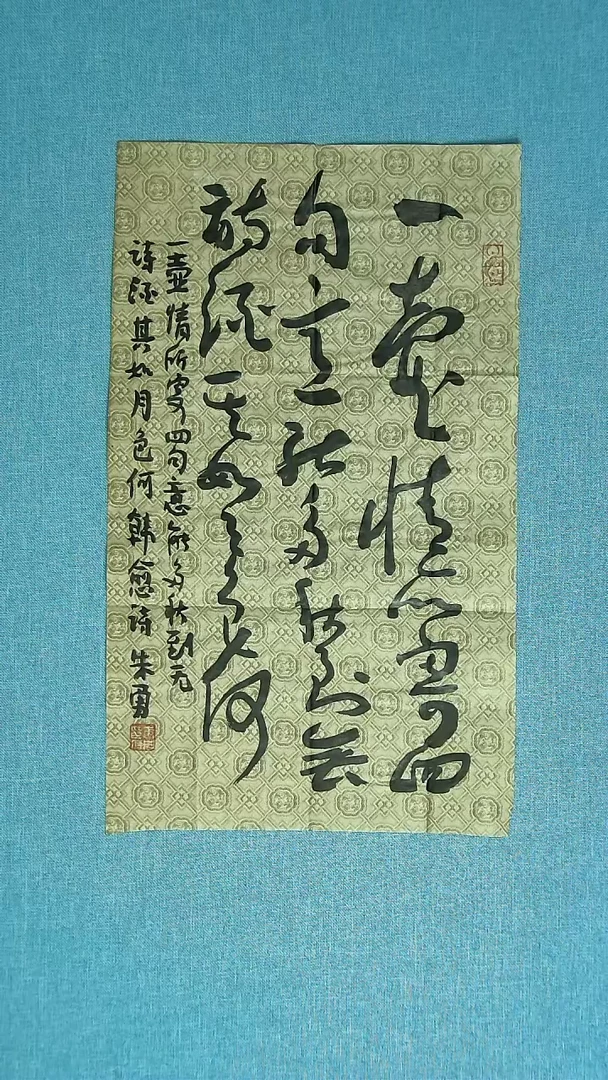 一壶情所寄四
句意能多秋到無
诗酒其如月色何
一壶情所寄四句意能多秋到无
诗酒其如月色何韩愈诗朱勇